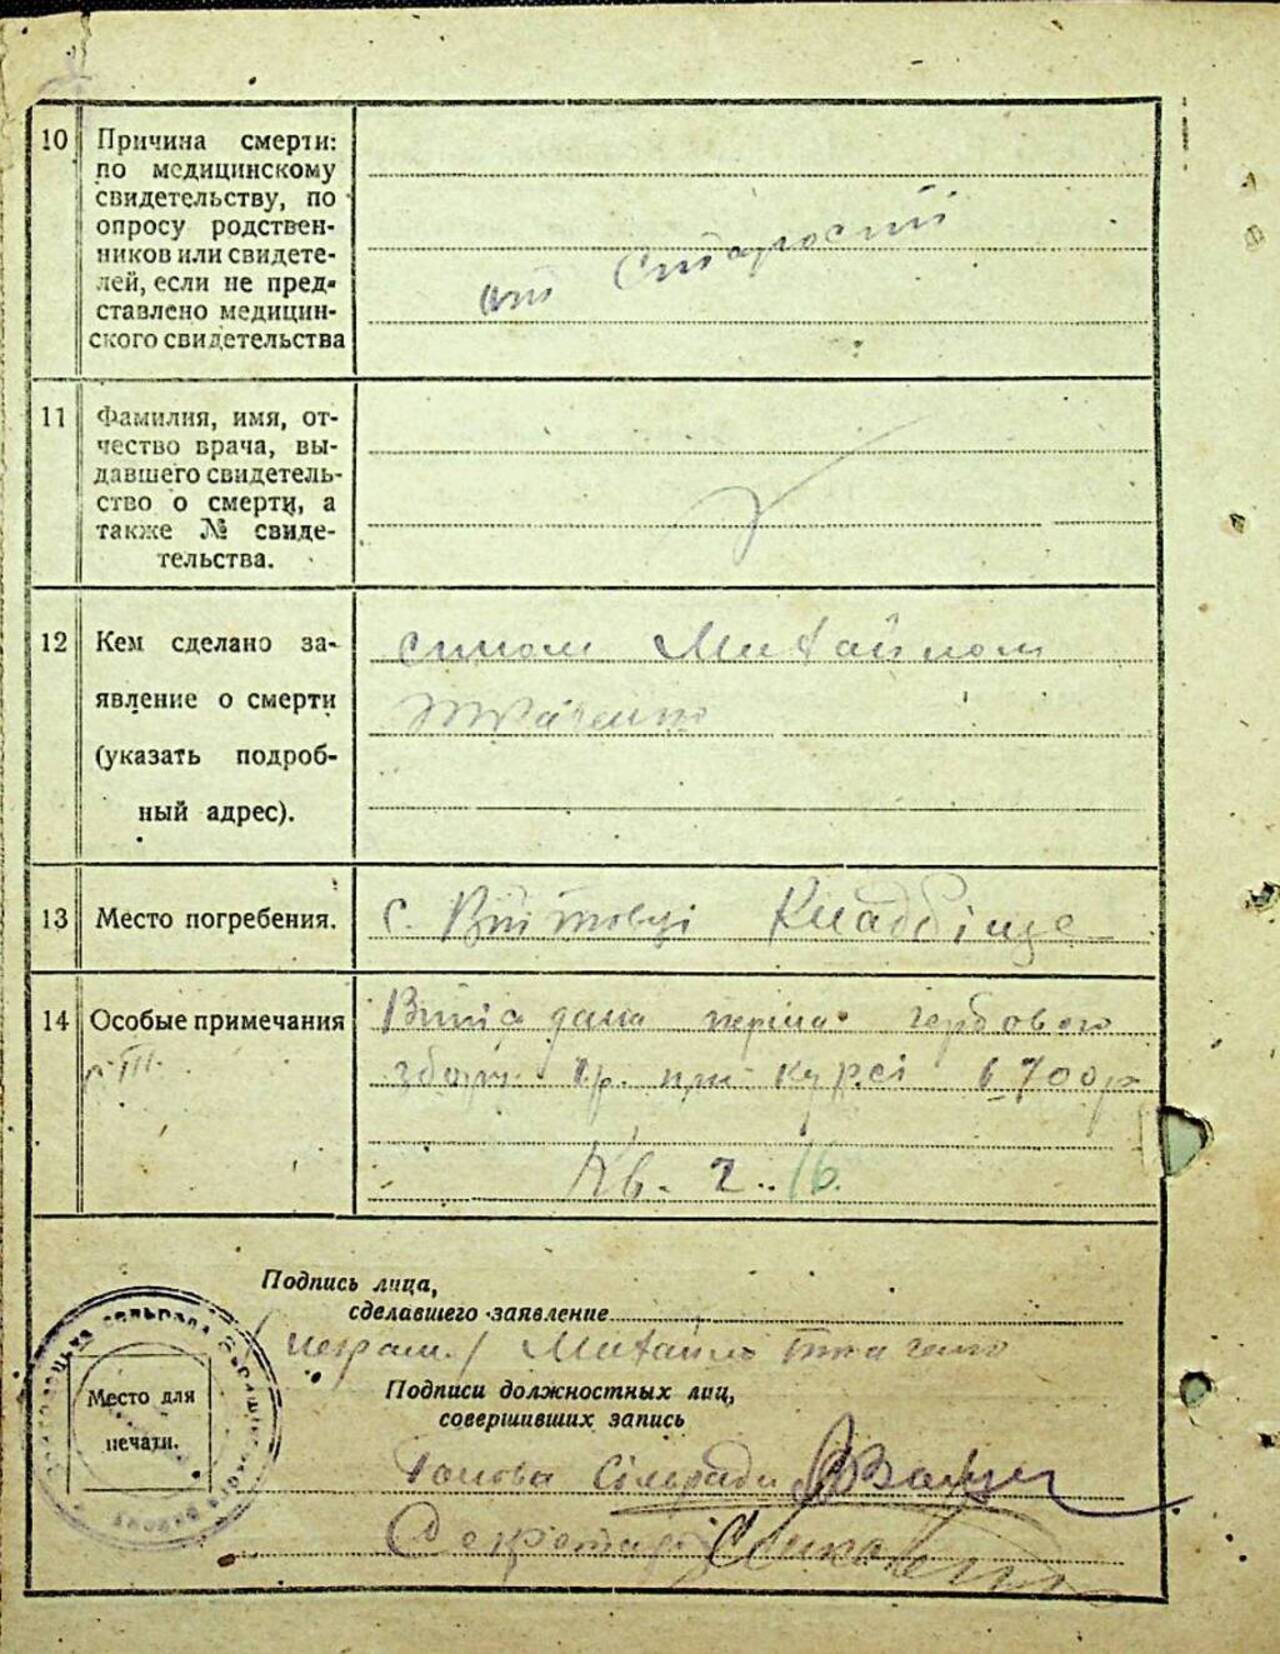 10 Причина смерти:
по медицинскому
свидетельству, по
опросу родствен-
ников или свидете-
лей, если не пред-
ставлено медицин-
ского свидетельства
от старости
11 Фамилия, имя, от-
чество врача, вы-
давшего свидетель-
ство о смерти, а
также № свиде-
тельства.
12 Кем сделано за-
явление о смерти
(указать подроб-
ный адрес).
сином Михайлом
Ткаченко
13 Место погребения.
с. Війтовці Кладбіще
14 Особые примечания
гербового
збору кр. при курсі 6700р
Кв. 2. 16.
Подпись лица,
сделавшего заявление
/неграм./ Михайло Ткаченко
Подписи должностных лиц,
совершивших запись
Место для
печати.
Голова Сільради
Секретар